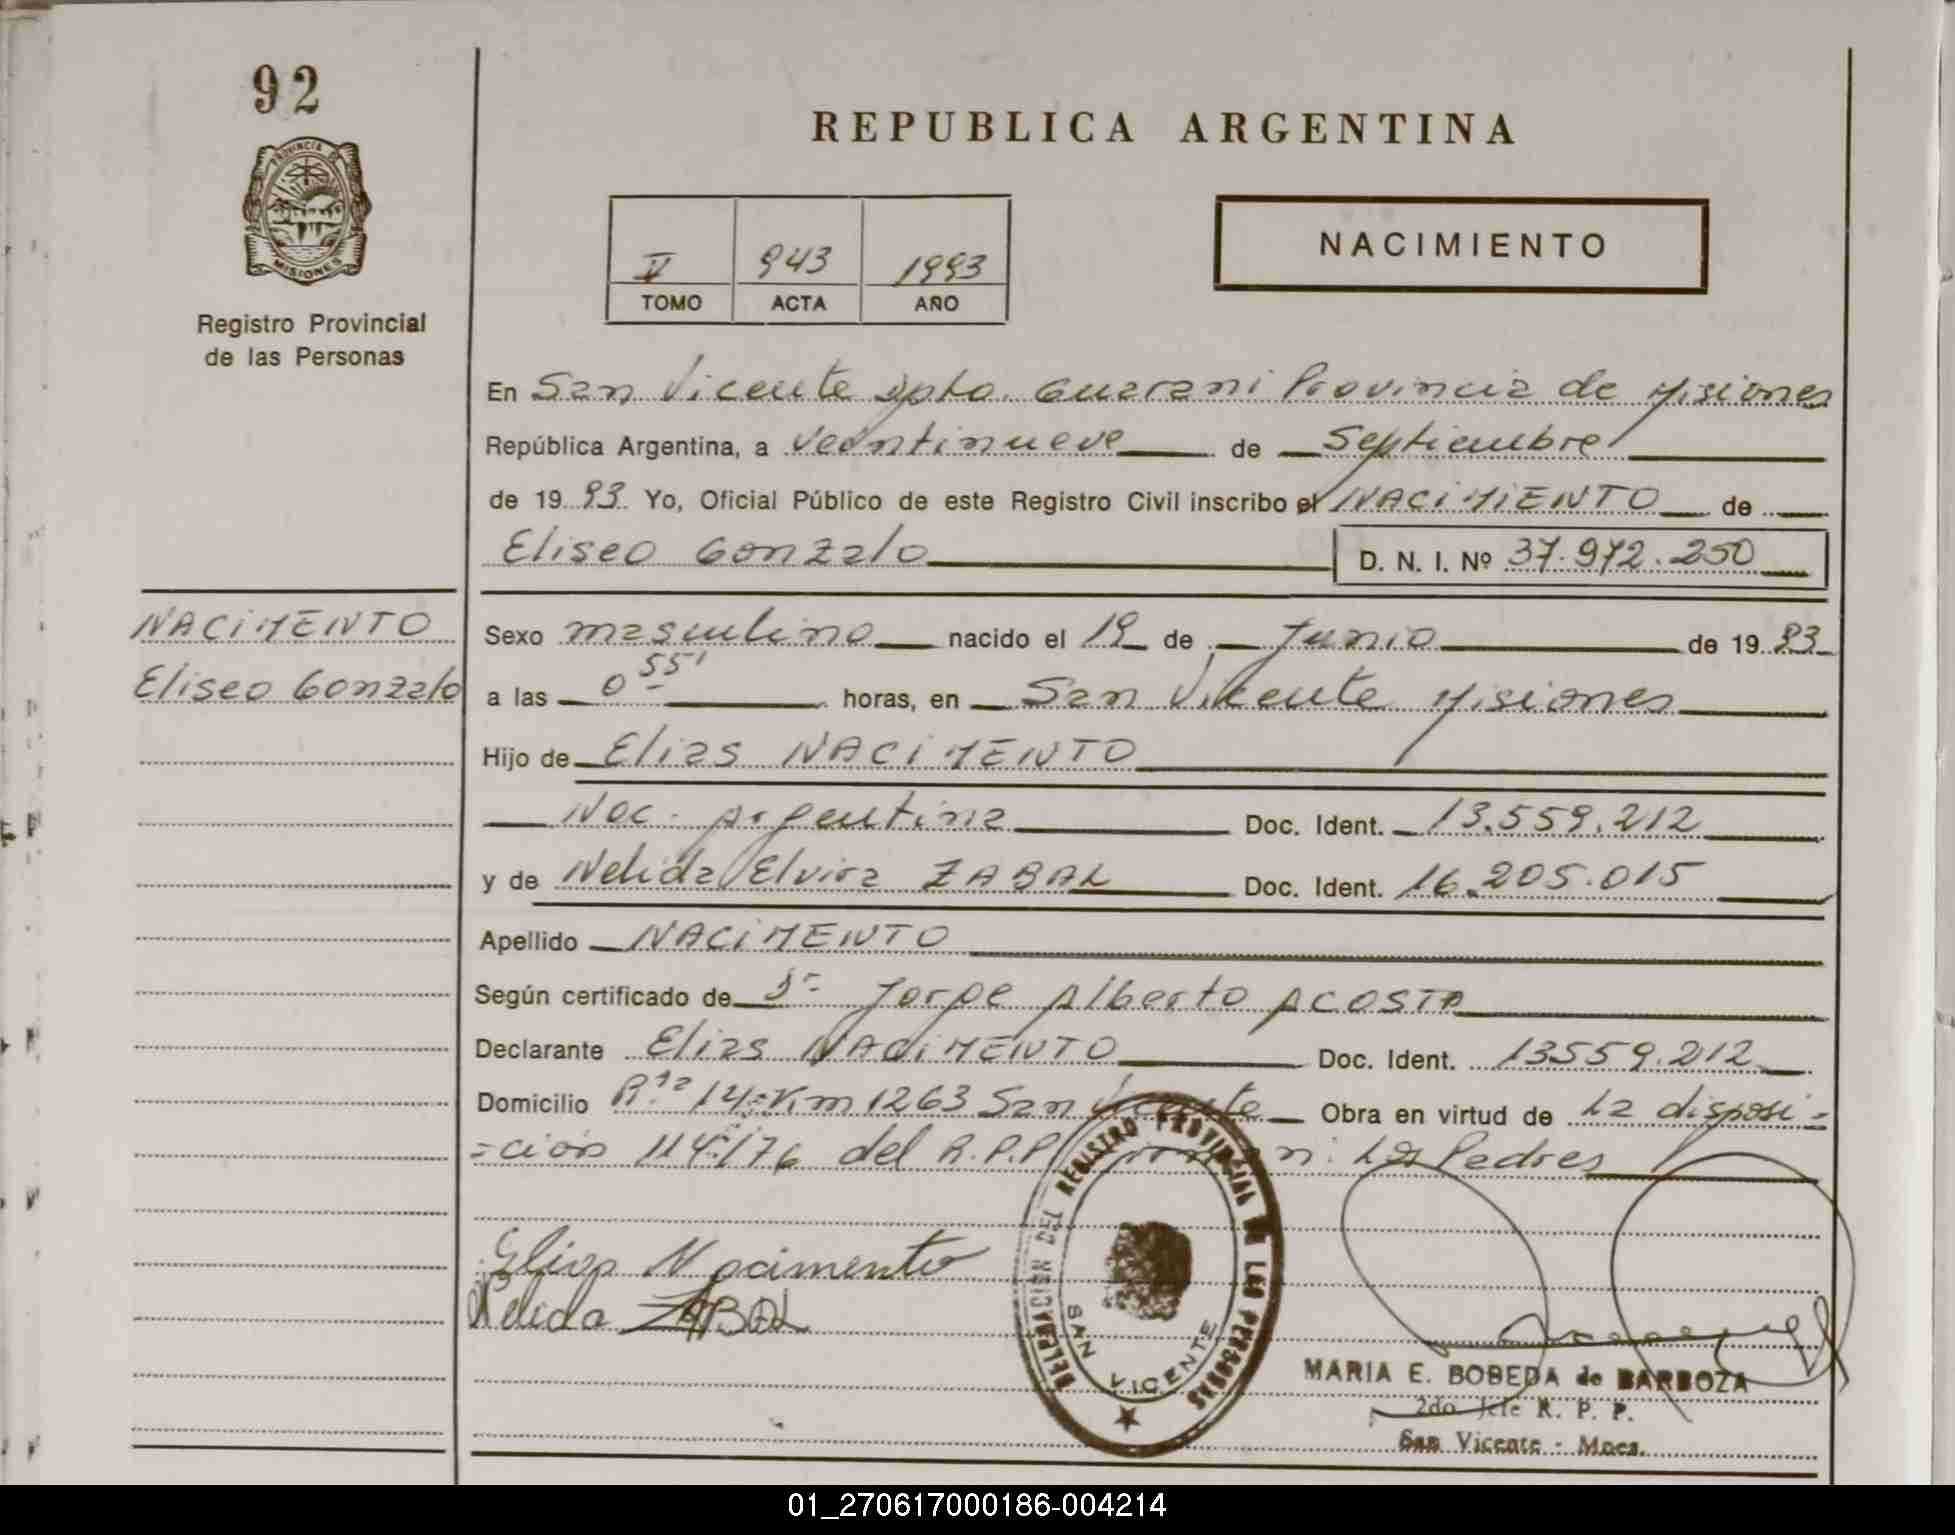 92
REPUBLICA ARGENTINA
PROVINCIA DE
MISIONES
Registro Provincial
de las Personas
V 943 1993
TOMO ACTA AÑO
NACIMIENTO
En San Vicente Dpto. Guarani Provincia de Misiones
República Argentina, a Veintinueve de Septiembre
de 1993 Yo, Oficial Público de este Registro Civil inscribo el NACIMIENTO de
Eliseo Gonzalo D. N. I. Nº 37.972.250
NACIMENTO
Eliseo Gonzalo
Sexo masculino nacido el 19 de Junio de 1993
a las 0 55' horas, en San Vicente Misiones
Hijo de Elias NACIMENTO
Nac. Argentina Doc. Ident. 13.559.212
y de Nelida Elvira ZABAL Doc. Ident. 16.205.015
Apellido NACIMENTO
Según certificado de Jorge Alberto ACOSTA
Declarante Elias NACIMENTO Doc. Ident. 13559.212
Domicilio R.ta 14 Km 1263 San Vicente Obra en virtud de la disposi=
=ción 114/76 del R.P.P. Los Padres
Elias Nacimento
Nelida ZABAL
DELEGACION DEL REGISTRO PROVINCIAL DE LAS PERSONAS
SAN VICENTE
MARIA E. BOBEDA de BARBOZA
2do Jefe R. P. P.
San Vicente - Mnes.
01_270617000186-004214